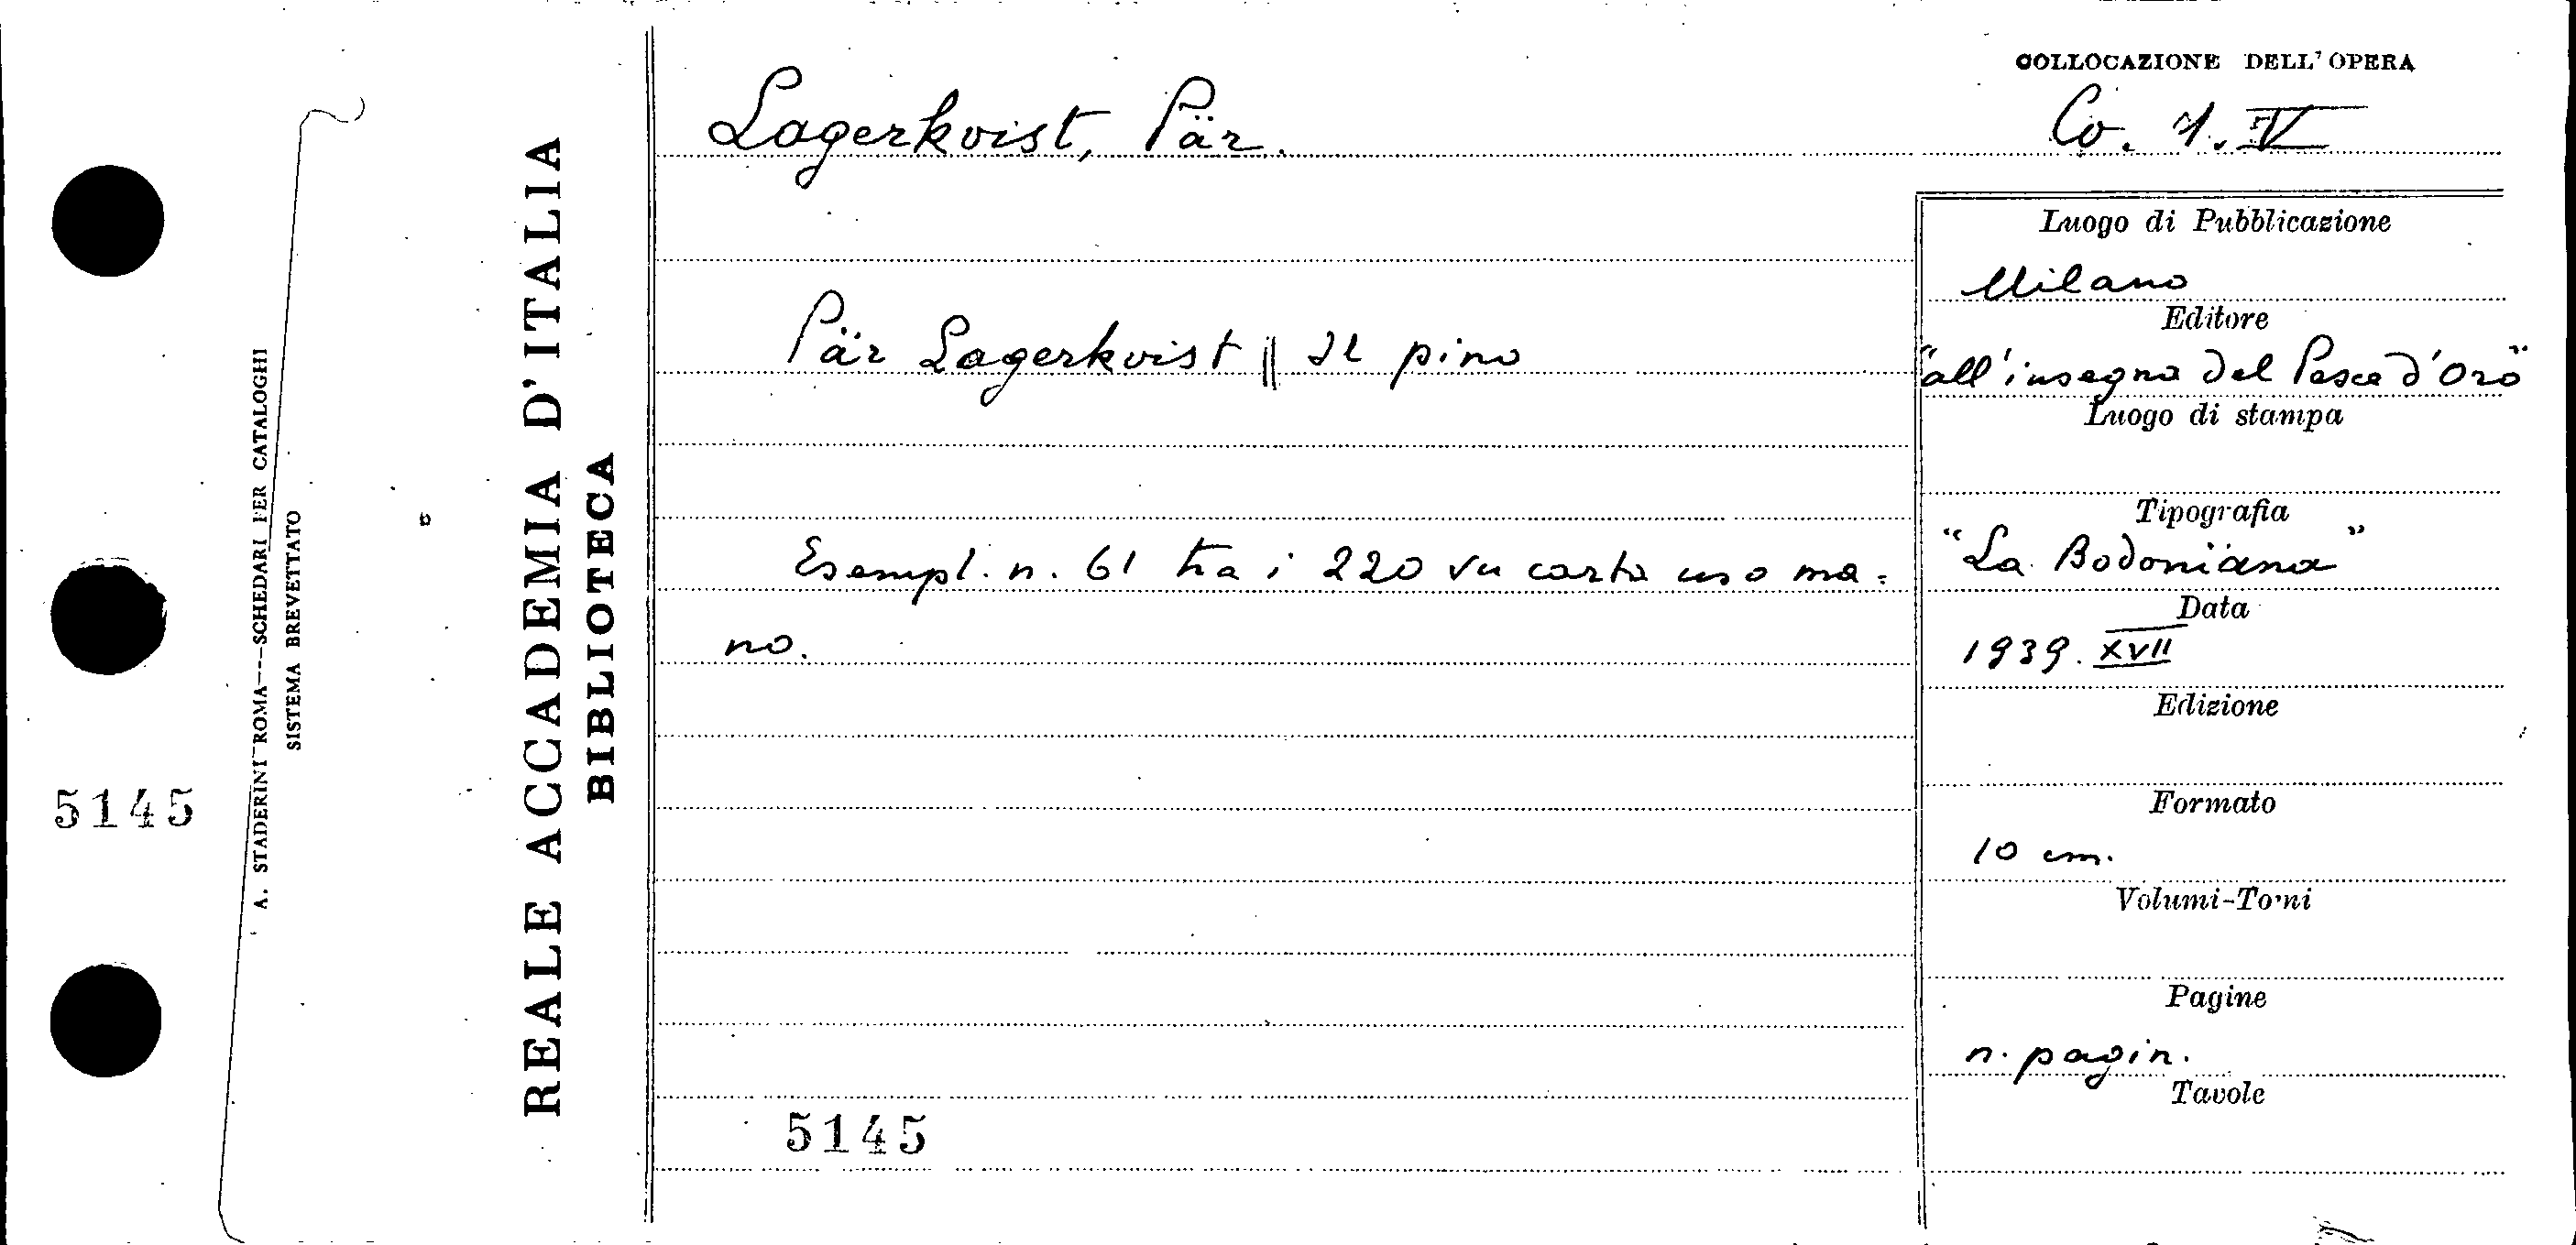 COLLOCAZIONE DELL'OPERA
Lagerkvist, Pär.
Co. 1. V
Pär Lagerkvist || Il pino
Esempl. n. 61 tra i 220 su carta uso ma=
no.
5145
Luogo di Pubblicazione
Milano
Editore
"all'insegna del Pesce d'Oro"
Luogo di stampa
Tipografia
"La Bodoniana"
Data
1939. XVII
Edizione
Formato
10 cm.
Volumi-Tomi
Pagine
n. pagin.
Tavole
REALE ACCADEMIA D'ITALIA
BIBLIOTECA
A. STADERINI ROMA---SCHEDARI PER CATALOGHI
SISTEMA BREVETTATO
5145